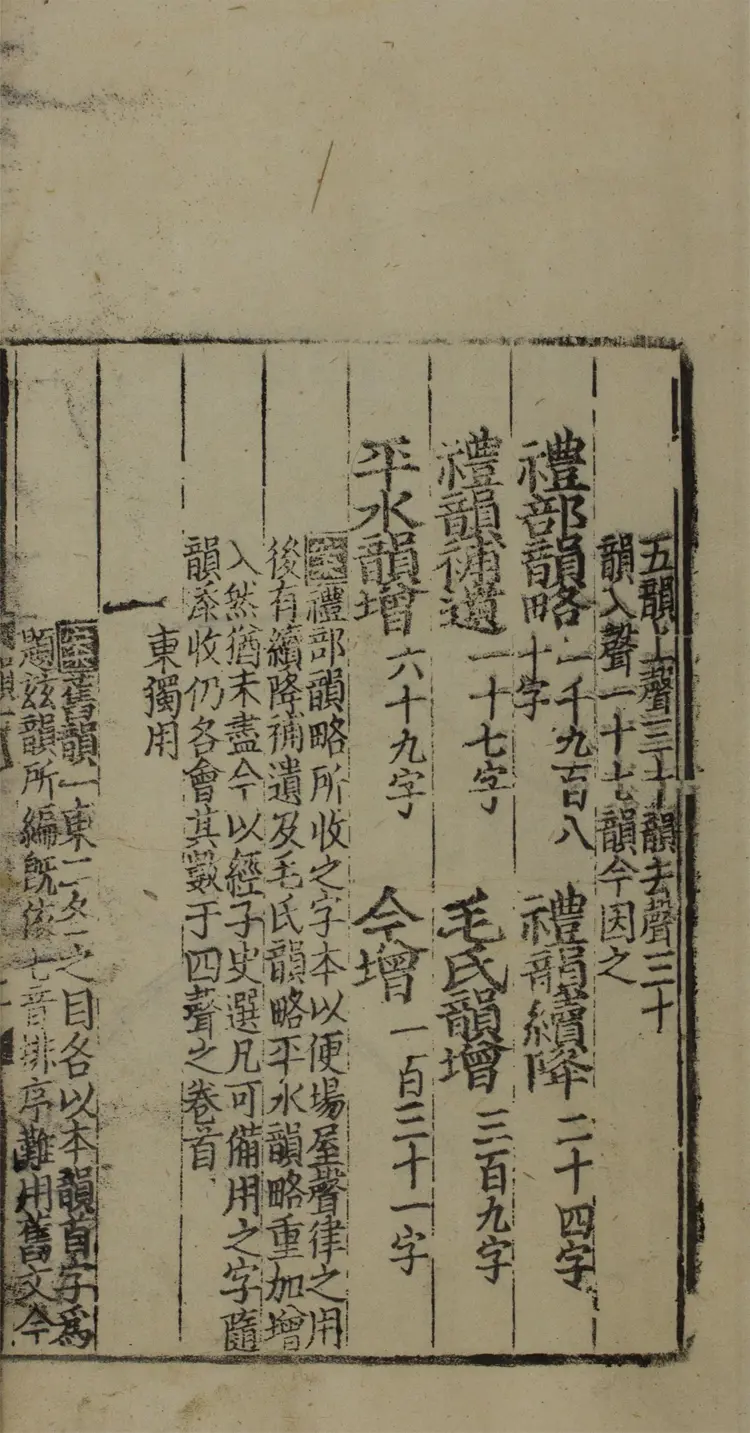 五韻上聲三十韻去聲三十
韻入聲一十七韻今因之
禮部韻略一千九百八十字
禮韻續降二十四字
禮韻補遺一十七字
毛氏韻增三百九字
平水韻增六十九字
今增一百三十一字
禮部韻略所收之字本以便場屋聲律之用
後有續降補遺及毛氏韻略平水韻略重加增
入然猶未盡今以經子史選凡可備用之字隨
韻添收仍各會其數于四聲之卷首
一
東獨用
舊韻一東二冬之目各以本韻首字爲
題玆韻所編旣依七音排序難用舊文今